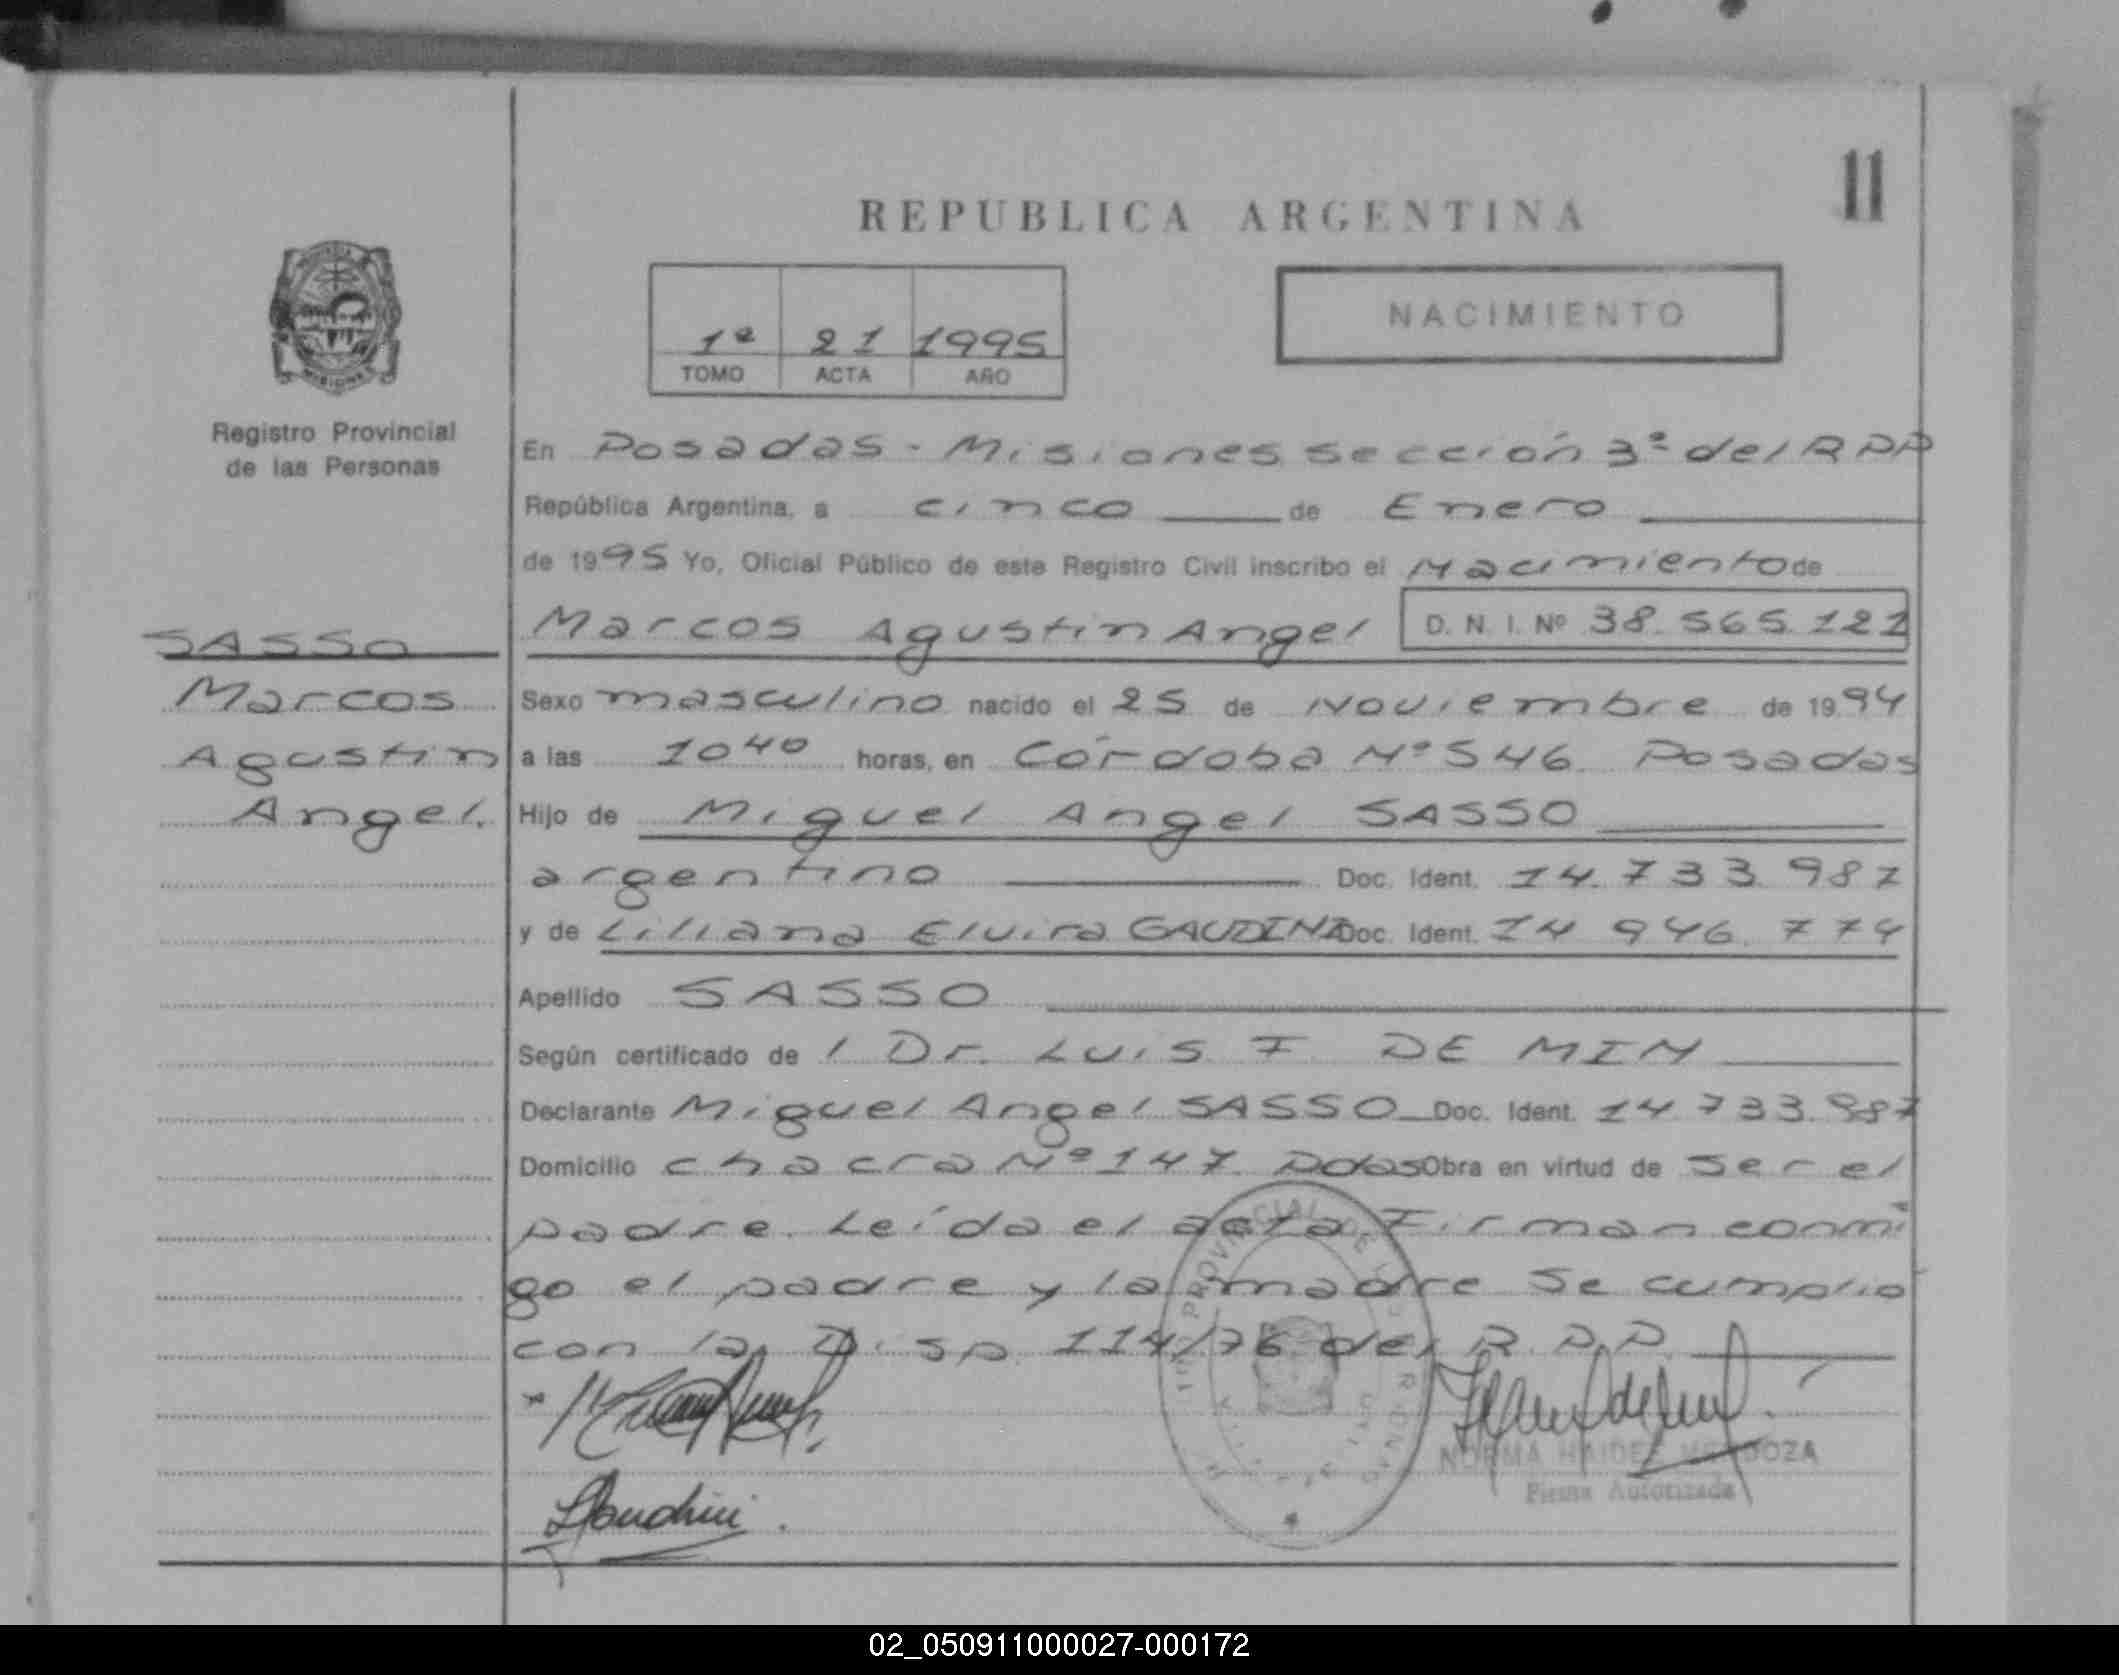 11
REPUBLICA ARGENTINA
NACIMIENTO
1º 21 1995
TOMO ACTA AÑO
MISIONES
Registro Provincial
de las Personas
En Posadas - Misiones Sección 3º del R P P
República Argentina, a cinco de Enero
de 1995 Yo, Oficial Público de este Registro Civil inscribo el Nacimiento de
SASSO
Marcos Agustin Angel D. N. I. Nº 38.565.121
Marcos
Agustin
Angel.
Sexo masculino nacido el 25 de Noviembre de 1994
a las 10 40 horas, en Córdoba Nº 546. Posadas
Hijo de Miguel Angel SASSO
argentino Doc. Ident. 14.733.987
y de Liliana Elvira GAUDINI Doc. Ident. 14 946.774
Apellido SASSO
Según certificado de l Dr. Luis F. DE MIN
Declarante Miguel Angel SASSO Doc. Ident. 14 733.987
Domicilio chacra Nº 147. Pdas Obra en virtud de ser el
padre. Leída el acta Firman conmi
go el padre y la madre Se cumplio
con la Disp. 114/76 del R.P.P.
NORMA HAIDEE MENDOZA
Firma Autorizada
02_050911000027-000172